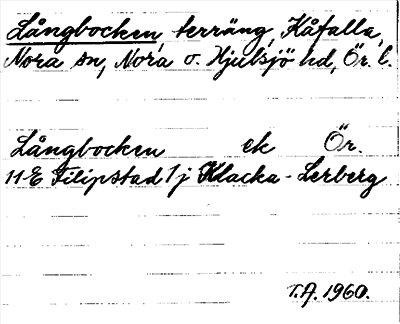 Långbocken, terräng, Kåfalla,
Nora sn, Nora o. Hjulsjö hd, Ör. l.
Långbocken ek Ör.
11-E Filipstad 1j Klacka-Lerberg
T.A. 1960.